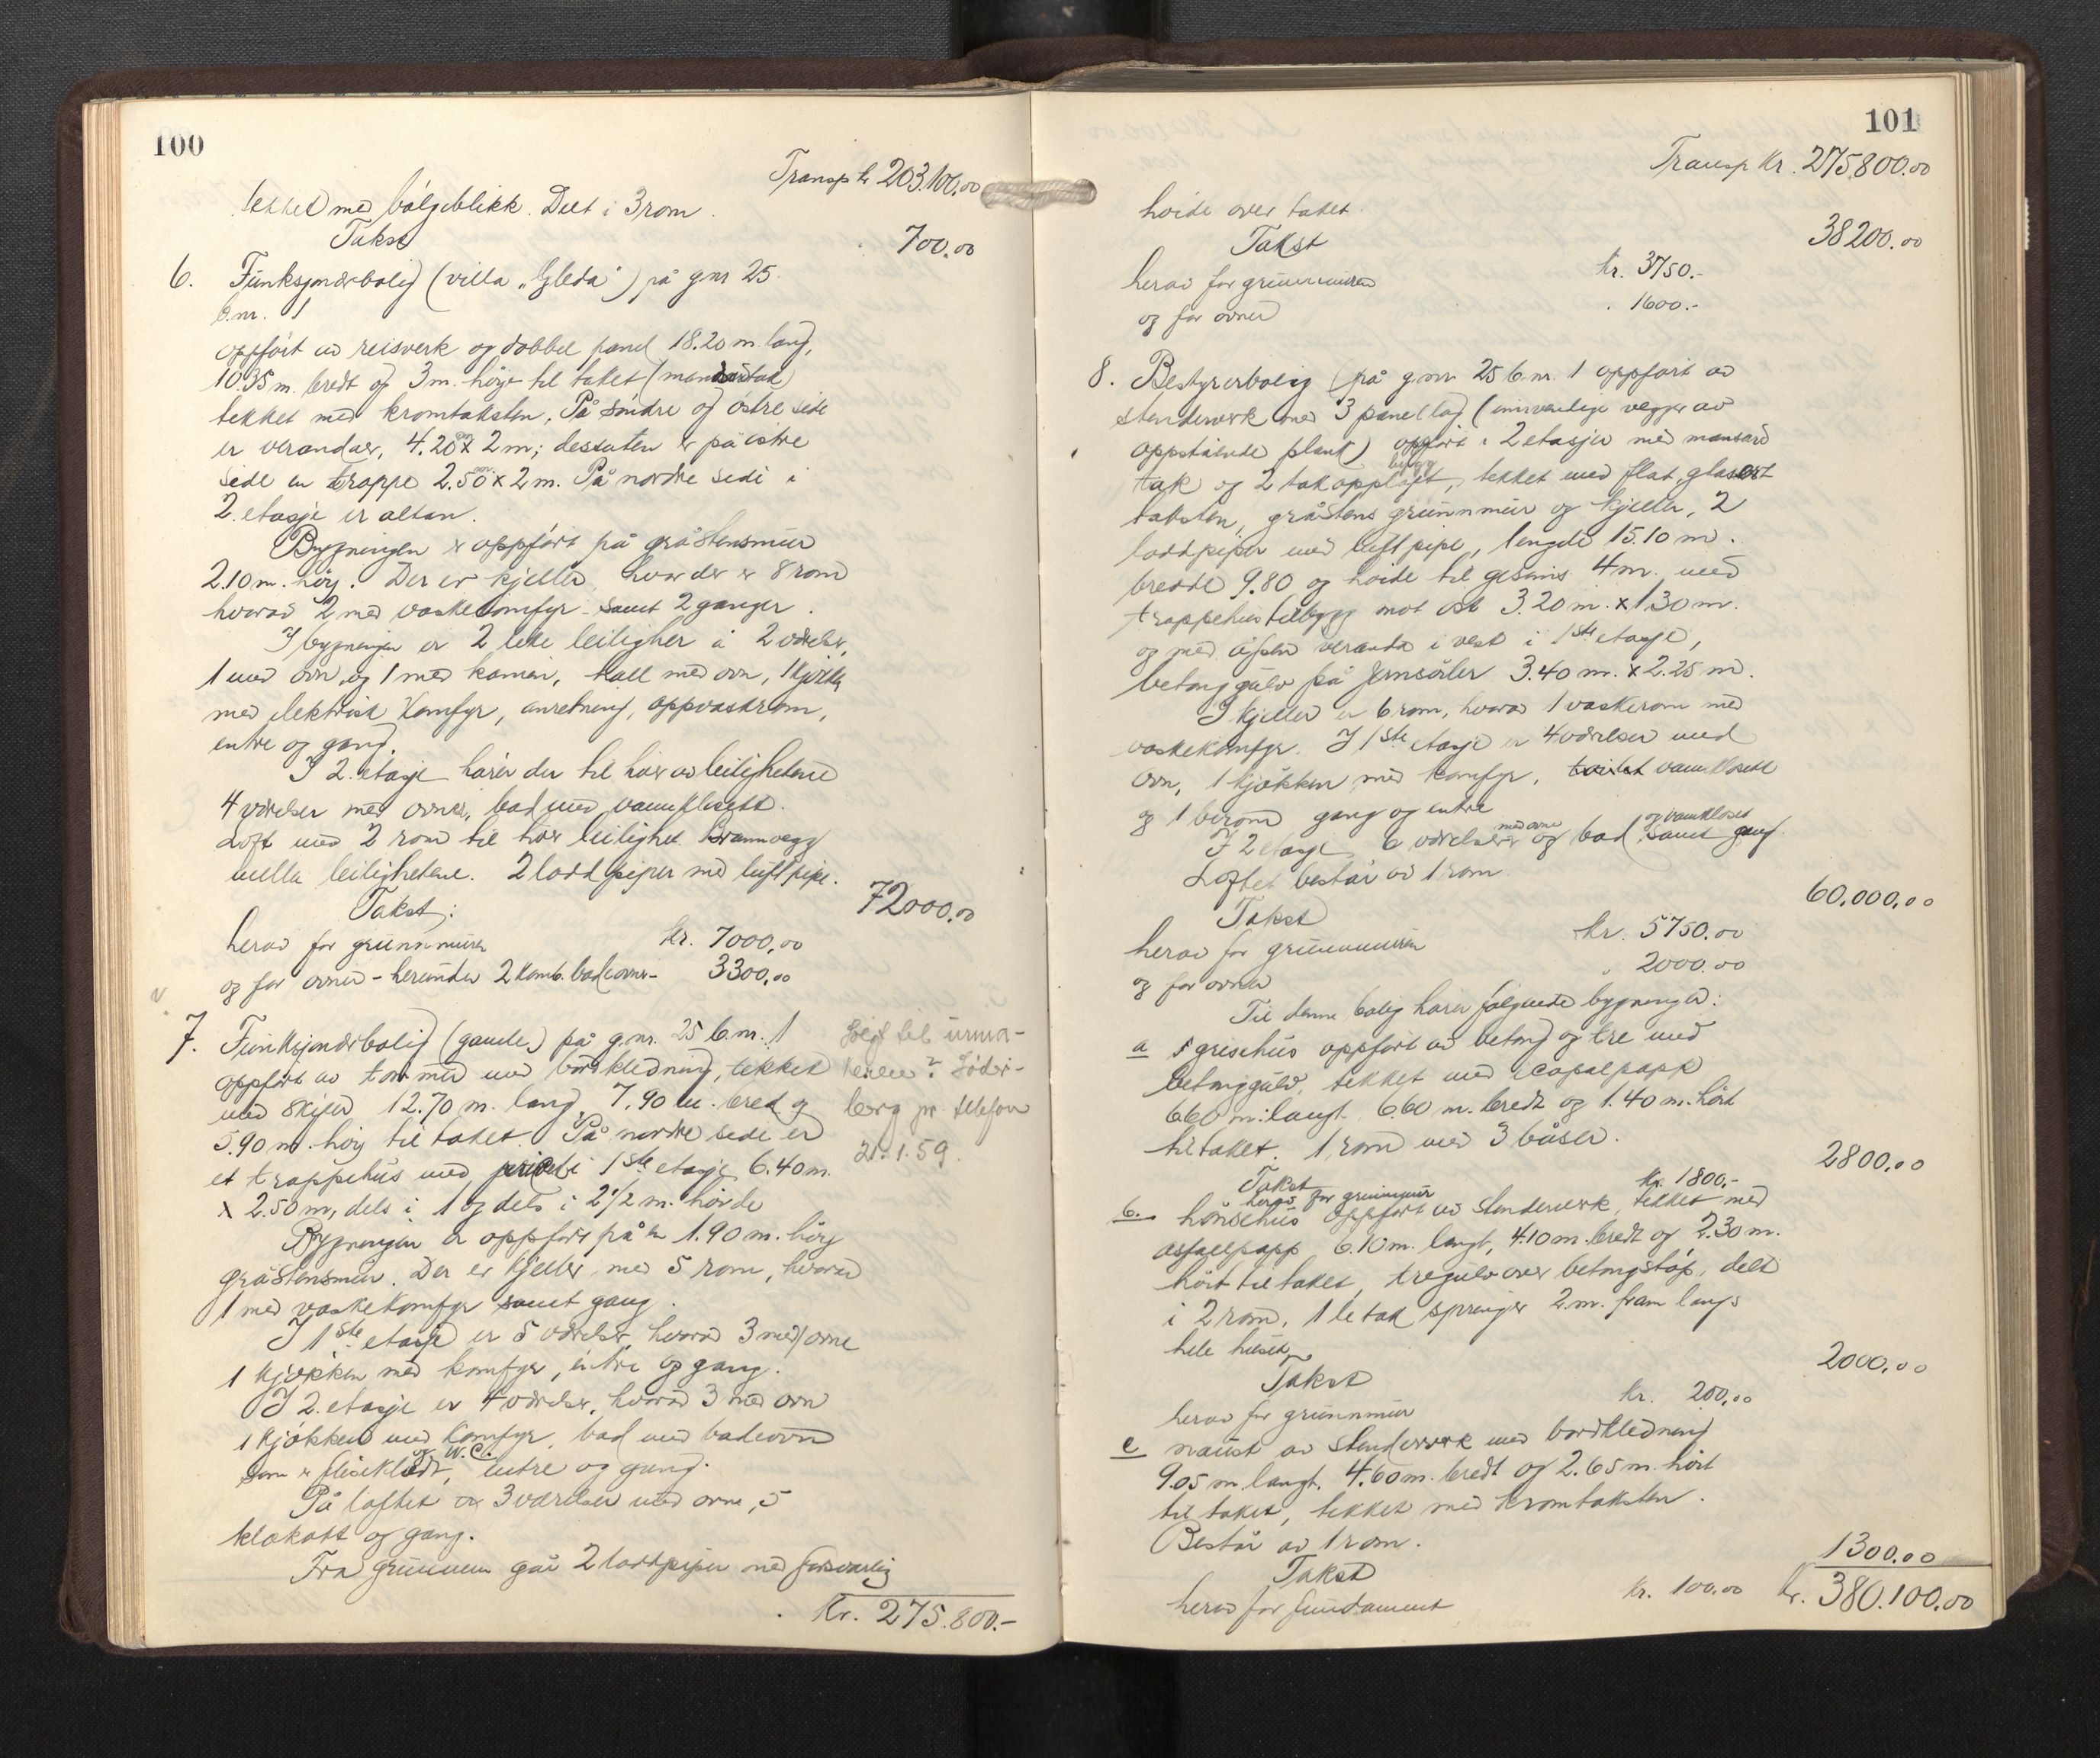 100
Transp kr 203.100.00
tekket med bølgeblikk. Delt i 3 rom.
Takst 700.00
6. Funksjonærbolig (villa „Gleda") på gnr 25
b.nr. 1
oppført av reisverk og dobbel panel 18.20 m. lang,
10.35 m. bredt og 3 m. høyt til taket (mansardtak)
tekket med kromtaksten. På søndre og østre side
er verandaer, 4.20 m x 2 m; dessuten er på østre
side en trappe 2.50 m x 2 m. På nordre side i
2. etasje er altan.
Bygningen er oppført på gråstensmur
2.10 m. høy. Der er kjeller hvor der er 8 rom
hvorav 2 med vaskekomfyr samt 2 ganger.
I bygningen er 2 like leiligheter à 2 værelser,
1 med ovn og 1 med kamin, hall med ovn, 1 kjøkken
med elektrisk komfyr, anretning, oppvaskrom,
entre og gang.
I 2. etasje hører der til hver av leilighetene
4 værelser med ovner, bad med vannklosett.
Loft med 2 rom til hver leilighet. Brannvegg
mellem leilighetene. 2 loddpiper med luftpipe.
Takst: 72000.00
herav for grunnmuren kr. 7000.00
og for ovner - herunder 2 komb. badeovner - 3300.00
7. Funksjonærbolig (gamle) på g.nr. 25 b.nr. 1
oppført av tømmer med bordkledning, tekket
med skifer 12.70 m. lang, 7.90 m. bred og
5.90 m. høy til taket. På nordre side er
et trappehus med privet i 1ste etasje 6.40 m.
x 2.50 m, dels i 1 og dels i 2 1/2 m. høide
Bygningen er oppført på en 1.90 m. høy
gråstensmur. Der er kjeller med 5 rom, hvorav
1 med vaskekomfyr samt gang.
I 1ste etasje er 5 værelser, hvorav 3 med ovne
1 kjøkken med komfyr, entre og gang.
I 2. etasje er 4 værelser, hvorav 3 med ovn
1 kjøkken med komfyr, bad med badeovn
og W.C.
som er flisekledt, entre og gang.
På loftet er 3 værelser med ovne, 5
klækott og gang.
Fra grunnen går 2 loddpiper med forsvarlig
Kr. 275.800.-
Solgt til urma-
keren? Söder-
berg pr. telefon
21.1.59.
101
Transp kr. 275.800.00
høide over taket.
Takst 38200.00
herav for grunnmuren kr. 3750.-
og for ovner " 1600.-
8. Bestyrerbolig på g.nr. 25 b.nr. 1 oppført av
stenderverk med 3 panellag (innvendige vegger av
oppstående plank) oppført i 2 etasjer med mansard
bygg
tak og 2 takoppløft, tekket med flat, glasert
taksten, gråstens grunnmur og kjeller, 2
loddpiper med luftpipe, lengde 15.10 m.
bredde 9.80 og høide til gesims 4 m. med
trappehustilbygg mot øst 3.20 m. x 1.30 m.
og med åpen veranda i vest i 1ste etasje,
betonggulv på jernsøiler 3.40 m. x 2.25 m.
I kjeller er 6 rom, hvorav 1 vaskerom med
vaskekomfyr. I 1ste etasje er 4 værelser med
ovn, 1 kjøkken med komfyr, vannklosett
og 1 birom gang og entre
med ovne og vannkloset
I 2 etasje 6 værelser og bad, samt gang.
Loftet består av 1 rom
Takst 60.000.00
herav for grunnmuren kr. 5750.00
og for ovner " 2000.00
Til denne bolig hører følgende bygninger:
a grisehus oppført av betong og tre med
betonggulv, tekket med
6.60 m. langt 6.60 m. bredt og 1.40 m. høit
til taket. 1 rom med 3 båser.
Takst 2800.00
herav for grunnmur kr. 1800.-
b. hønsehus oppført av stenderverk, tekket med
asfaltpapp 6.10 m. langt, 4.10 m. bredt og 2.30 m.
høit til taket, tregulv over betongstøp, delt
i 2 rom. 1 letak springer 2. m. fram langs
hele huset.
Takst 2000.00
herav for grunnmur kr. 200.00
c naust av stenderverk med bordkledning
9.05 m. langt, 4.60 m. bredt og 2.65 m. høit
til taket, tekket med kromtaksten.
Består av 1 rom.
Takst 1300.00
herav for fundament kr. 100.00 kr. 380.100.00